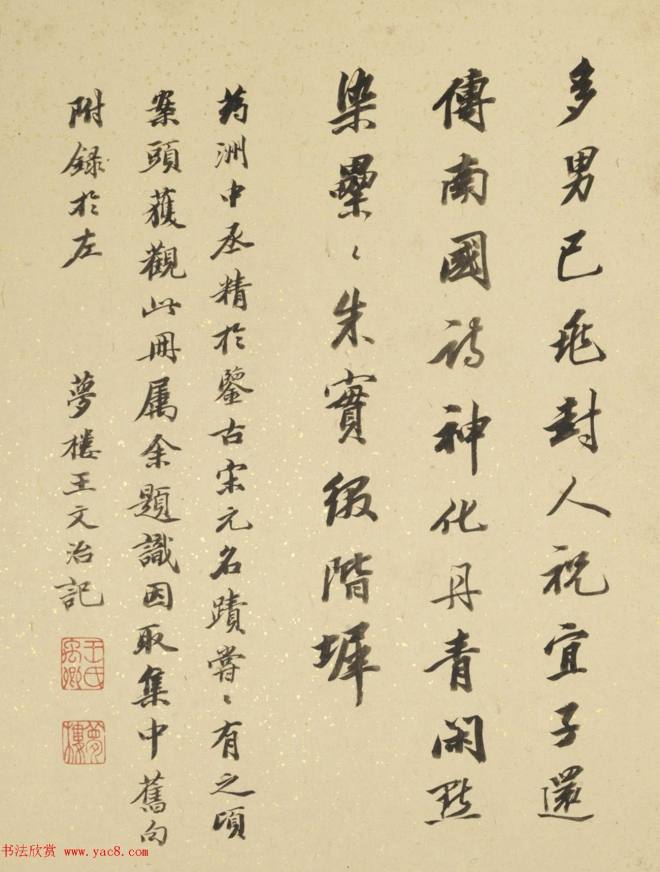 多男已兆封人祝宜子還
傳南國詩神化丹青閑點
染纍〻朱實綴階墀
葯洲中丞精於鑒古宋元名蹟嘗〻有之頃
案頭獲觀此冊属余題識因取集中舊句
附錄於左 夢樓王文治記
王氏禹卿
夢樓
书法欣赏 www.yac8.com